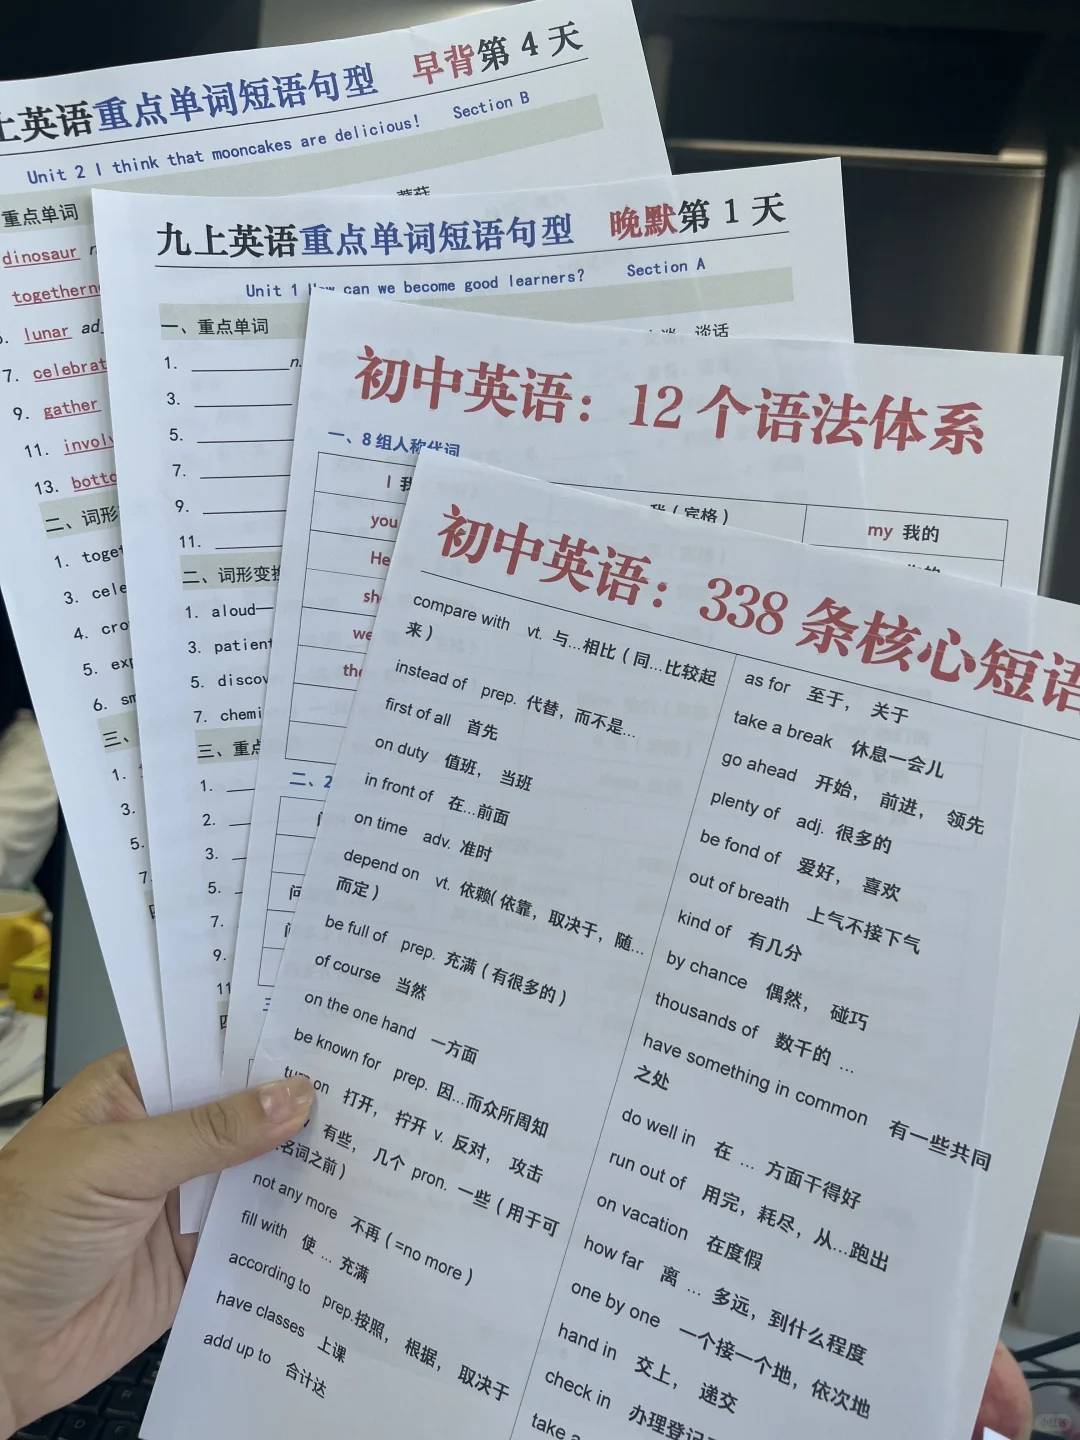 上英语重点单词短语句型 早背第 4 天
Unit 2 I think that mooncakes are delicious! Section B
重点单词
dinosaur
lunar ad
7.
9. gather
11.
13.
二、词形
1.
3.
4.
5.
6.
三、
1.
3.
5.
7.
九上英语重点单词短语句型 晚默第 1 天
Unit 1 How can we become good learners? Section A
一、重点单词
谈话
1. n.
3.
5.
7.
9.
11.
二、词形变换
1. aloud—
3. patient
5.
7.
三、重点
1.
2.
3.
5.
7.
9.
11
四
初中英语：12 个语法体系
一、8 组人称代词
I 我
（宾格）
my 我的
you
He
we
二、2
初中英语：338 条核心短语
compare with vt. 与...相比（同...比较起
来）
instead of prep. 代替，而不是...
first of all 首先
on duty 值班， 当班
in front of 在...前面
on time adv. 准时
depend on vt. 依赖(依靠，取决于，随...
而定）
be full of prep. 充满（有很多的）
of course 当然
on the one hand 一方面
be known for prep. 因...而众所周知
turn on 打开， 拧开 v. 反对， 攻击
有些， 几个 pron. 一些（用于可
名词之前）
not any more 不再（=no more）
fill with 使 ... 充满
according to prep.按照， 根据， 取决于
have classes 上课
add up to 合计达
as for 至于， 关于
take a break 休息一会儿
go ahead 开始， 前进， 领先
plenty of adj. 很多的
be fond of 爱好， 喜欢
out of breath 上气不接下气
kind of 有几分
by chance 偶然， 碰巧
thousands of 数千的 ...
have something in common 有一些共同
之处
do well in 在 ... 方面干得好
run out of 用完，耗尽，从...跑出
on vacation 在度假
how far 离 ... 多远，到什么程度
one by one 一个接一个地，依次地
hand in 交上， 递交
check in 办理登记
take
小红书